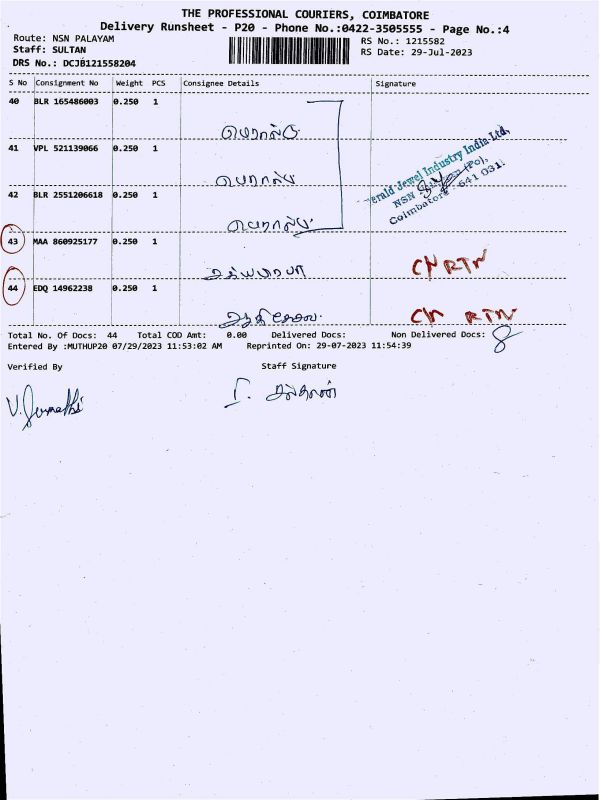 THE PROFESSIONAL COURIERS, COIMBATORE
Delivery Runsheet - P20 - Phone No.:0422-3505555 - Page No.:4
Route: NSN PALAYAM
RS No.: 1215582
Staff: SULTAN
RS Date: 29-Jul-2023
DRS No.: DCJB121558204
S No Consignment No Weight PCS Consignee Details Signature
40 BLR 165486003 0.250 1
41 VPL 521139066 0.250 1
Emerald Jewel Industry India Ltd,
NSN (Po),
Coimbatore - 641 031.
42 BLR 2551206618 0.250 1
43 MAA 860925177 0.250 1
CN RTN
44 EDQ 14962238 0.250 1
CN RTN
Total No. Of Docs: 44 Total COD Amt: 0.00 Delivered Docs: Non Delivered Docs: 8
Entered By :MUTHUP20 07/29/2023 11:53:02 AM Reprinted On: 29-07-2023 11:54:39
Verified By Staff Signature